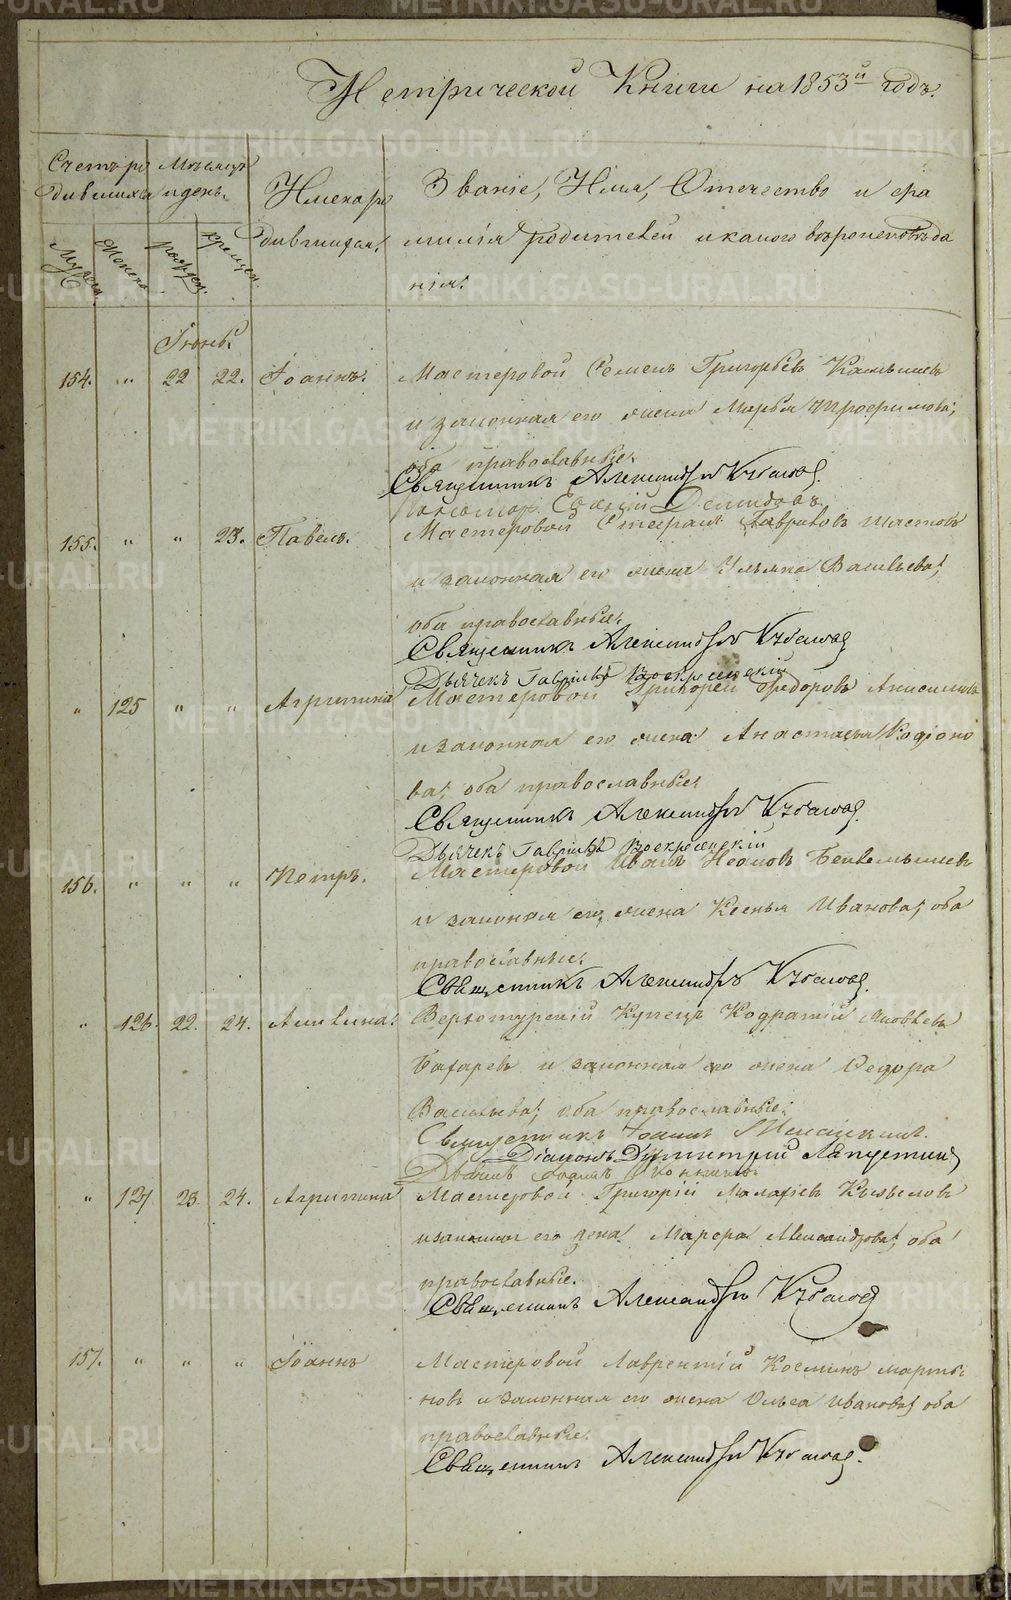 Метрической Книги на 1853й годъ.
Счетъ ро Мѣсяцъ
дившихся и день.
Имена ро
Званіе, Имя, Отечество и фа
Мужеск. Женска рожден. крещен.
дившихся,
милія родителей и какого вѣроисповѣда
нія.
Іюнь.
154. „ 22 22. Іоаннъ. Мастеровой Семенъ Григорьевъ
и законная его жена Марья Трофимова,
оба православные.
Священникъ Александръ
Демидовъ
155. „ „ 23. Павелъ. Мастеровой Стефанъ Гавриловъ
и законная его жена Ульяна Васильева,
оба православные.
Священникъ Александръ
Дьячекъ Гавріилъ Воскресенскій
„ 125 „ „ Агрипина Мастеровой Григорей Федоровъ Анисимовъ
и законная его жена Анастасья Родіоно
ва, оба православные.
Священникъ Александръ
Дьячекъ Гавріилъ Воскресенскій
156. „ „ „ Петръ. Мастеровой Иванъ
и законная его жена Ксенья Иванова, оба
православные.
Священникъ Александръ
„ 126. 22. 24. Акилина. Верхотурскій Купецъ Кодратій Яковлевъ
и законная его жена Федора
Васильева, оба православные.
Священникъ Іоаннъ
Діаконъ Димитрій Лапустинъ
Дьячекъ Іоаннъ
„ 127 23. 24. Агрипина Мастеровой Григорій
и законная его жена Марфа Александрова, оба
православные.
Священникъ Александръ
157. „ „ „ Іоаннъ Мастеровой Лаврентій Козминъ марты
новъ и законная его жена Ольга Иванова, оба
православные.
Священникъ Александръ
METRIKI.GASO-URAL.RU